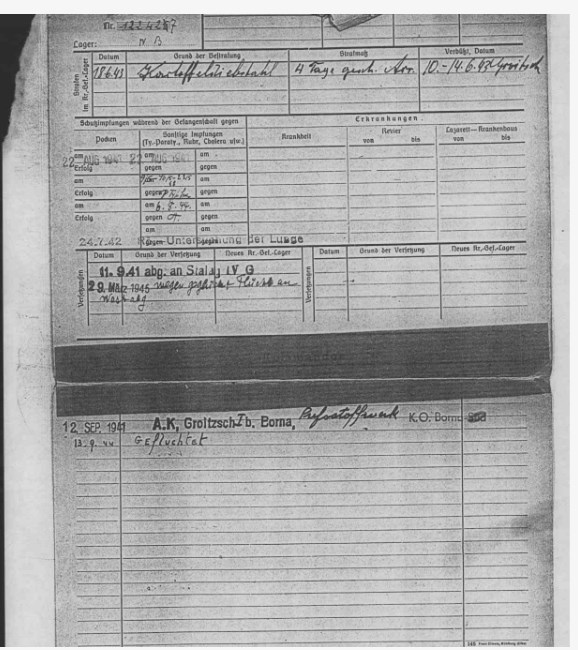 Nr. 122425
Lager: IV B
Datum Grund der Bestrafung Strafmaß Verbüßt, Datum
Strafen im Kr.-Gef.-Lager
18.6.43 Kartoffeldiebstahl 4 Tage gesch. Arr. 10.-14.6.43 Groitzsch
Schutzimpfungen während der Gefangenschaft gegen Erkrankungen
Pocken Sonstige Impfungen (Ty.-Paraty., Ruhr, Cholera usw.) Krankheit Revier von bis Lazarett — Krankenhaus von bis
am 22. AUG 1941 am 22. AUG 1941 am
Erfolg gegen gegen
am am
Erfolg gegen gegen
am am 6.5.44. am
Erfolg gegen gegen
am am
24.7.42 Rö.- Untersuchung der Lunge
gegen gegen
Versetzungen Datum Grund der Versetzung Neues Kr.-Gef.-Lager Versetzungen Datum Grund der Versetzung Neues Kr.-Gef.-Lager
11. 9.41 abg. an Stalag IV G
29. März 1945 wegen Flucht an
12 SEP. 1941 A.K. Groitzsch b. Borna, K.O. Borna
13. 9. 44 Geflüchtet